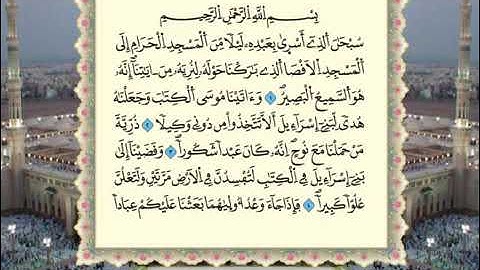 بِسْمِ اللَّهِ الرَّحْمَٰنِ الرَّحِيمِ
سُبْحَٰنَ الذِے أَسْرَىٰ بِعَبْدِهِۦ لَيْلاٗ مِّنَ اَ۬لْمَسْجِدِ اِ۬لْحَرَامِ إِلَى
اَ۬لْمَسْجِدِ اِ۬لَاقْصَا اَ۬لذِے بَٰرَكْنَا حَوْلَهُۥ لِنُرِيَهُۥ مِنَ ـايَٰتِنَآ إِنَّهُۥ
هُوَ اَ۬لسَّمِيعُ اُ۬لْبَصِيرُ ١ وَءَاتَيْنَا مُوسَى اَ۬لْكِتَٰبَ وَجَعَلْنَٰهُ
هُدىٗ لِّبَنِےٓ إِسْرَآءِيلَ أَلَّا تَتَّخِذُواْ مِن دُونِے وَكِيلاٗ ٢ ذُرِّيَّةَ
مَنْ حَمَلْنَا مَعَ نُوحٍ اِنَّهُۥ كَانَ عَبْداٗ شَكُوراٗ ٣ وَقَضَيْنَآ إِلَىٰ
بَنِےٓ إِسْرَآءِيلَ فِے اِ۬لْكِتَٰبِ لَتُفْسِدُنَّ فِے اِ۬لَارْضِ مَرَّتَيْنِ وَلَتَعْلُنَّ
عُلُوّاٗ كَبِيراٗ ٤ فَإِذَا جَآءَ وَعْدُ أُولَىٰهُمَا بَعَثْنَا عَلَيْكُمْ عِبَاداٗ